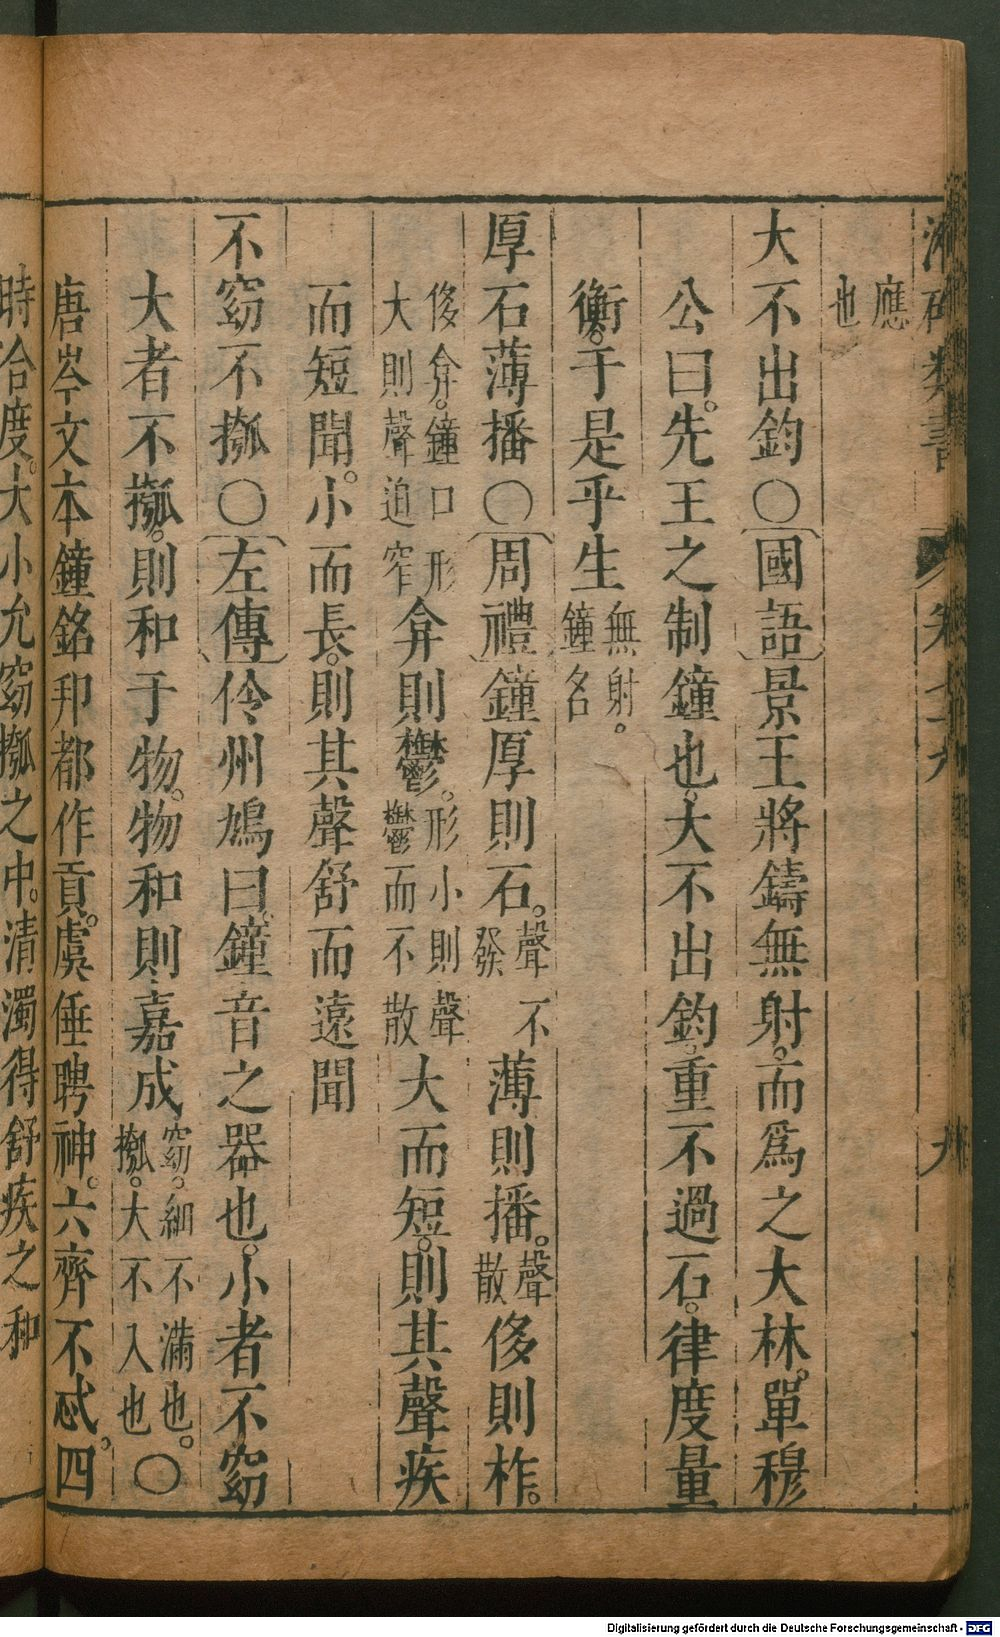 應
也
大不出鈞○國語景王將鑄無射。而爲之大林。單穆
公曰。先王之制鐘也。大不出鈞。重不過石。律度量
衡。于是乎生無射。鐘名
厚石薄播○周禮鐘厚則石。聲不發薄則播。聲散侈則柞。
侈弇。鐘口形大則聲迫窄弇則鬱。形小則聲鬱而不散大而短。則其聲疾
而短聞。小而長。則其聲舒而遠聞
不窕不摦○左傳伶州鳩曰。鐘音之器也。小者不窕
大者不摦。則和于物。物和則嘉成窕。細不滿也。摦。大不入也○
唐岑文本鐘銘邦都作貢。虞倕聘神。六齊不忒。四
時合度。大小允窕摦之中。清濁得舒疾之和
類書
九
Digitalisierung gefördert durch die Deutsche Forschungsgemeinschaft - DFG